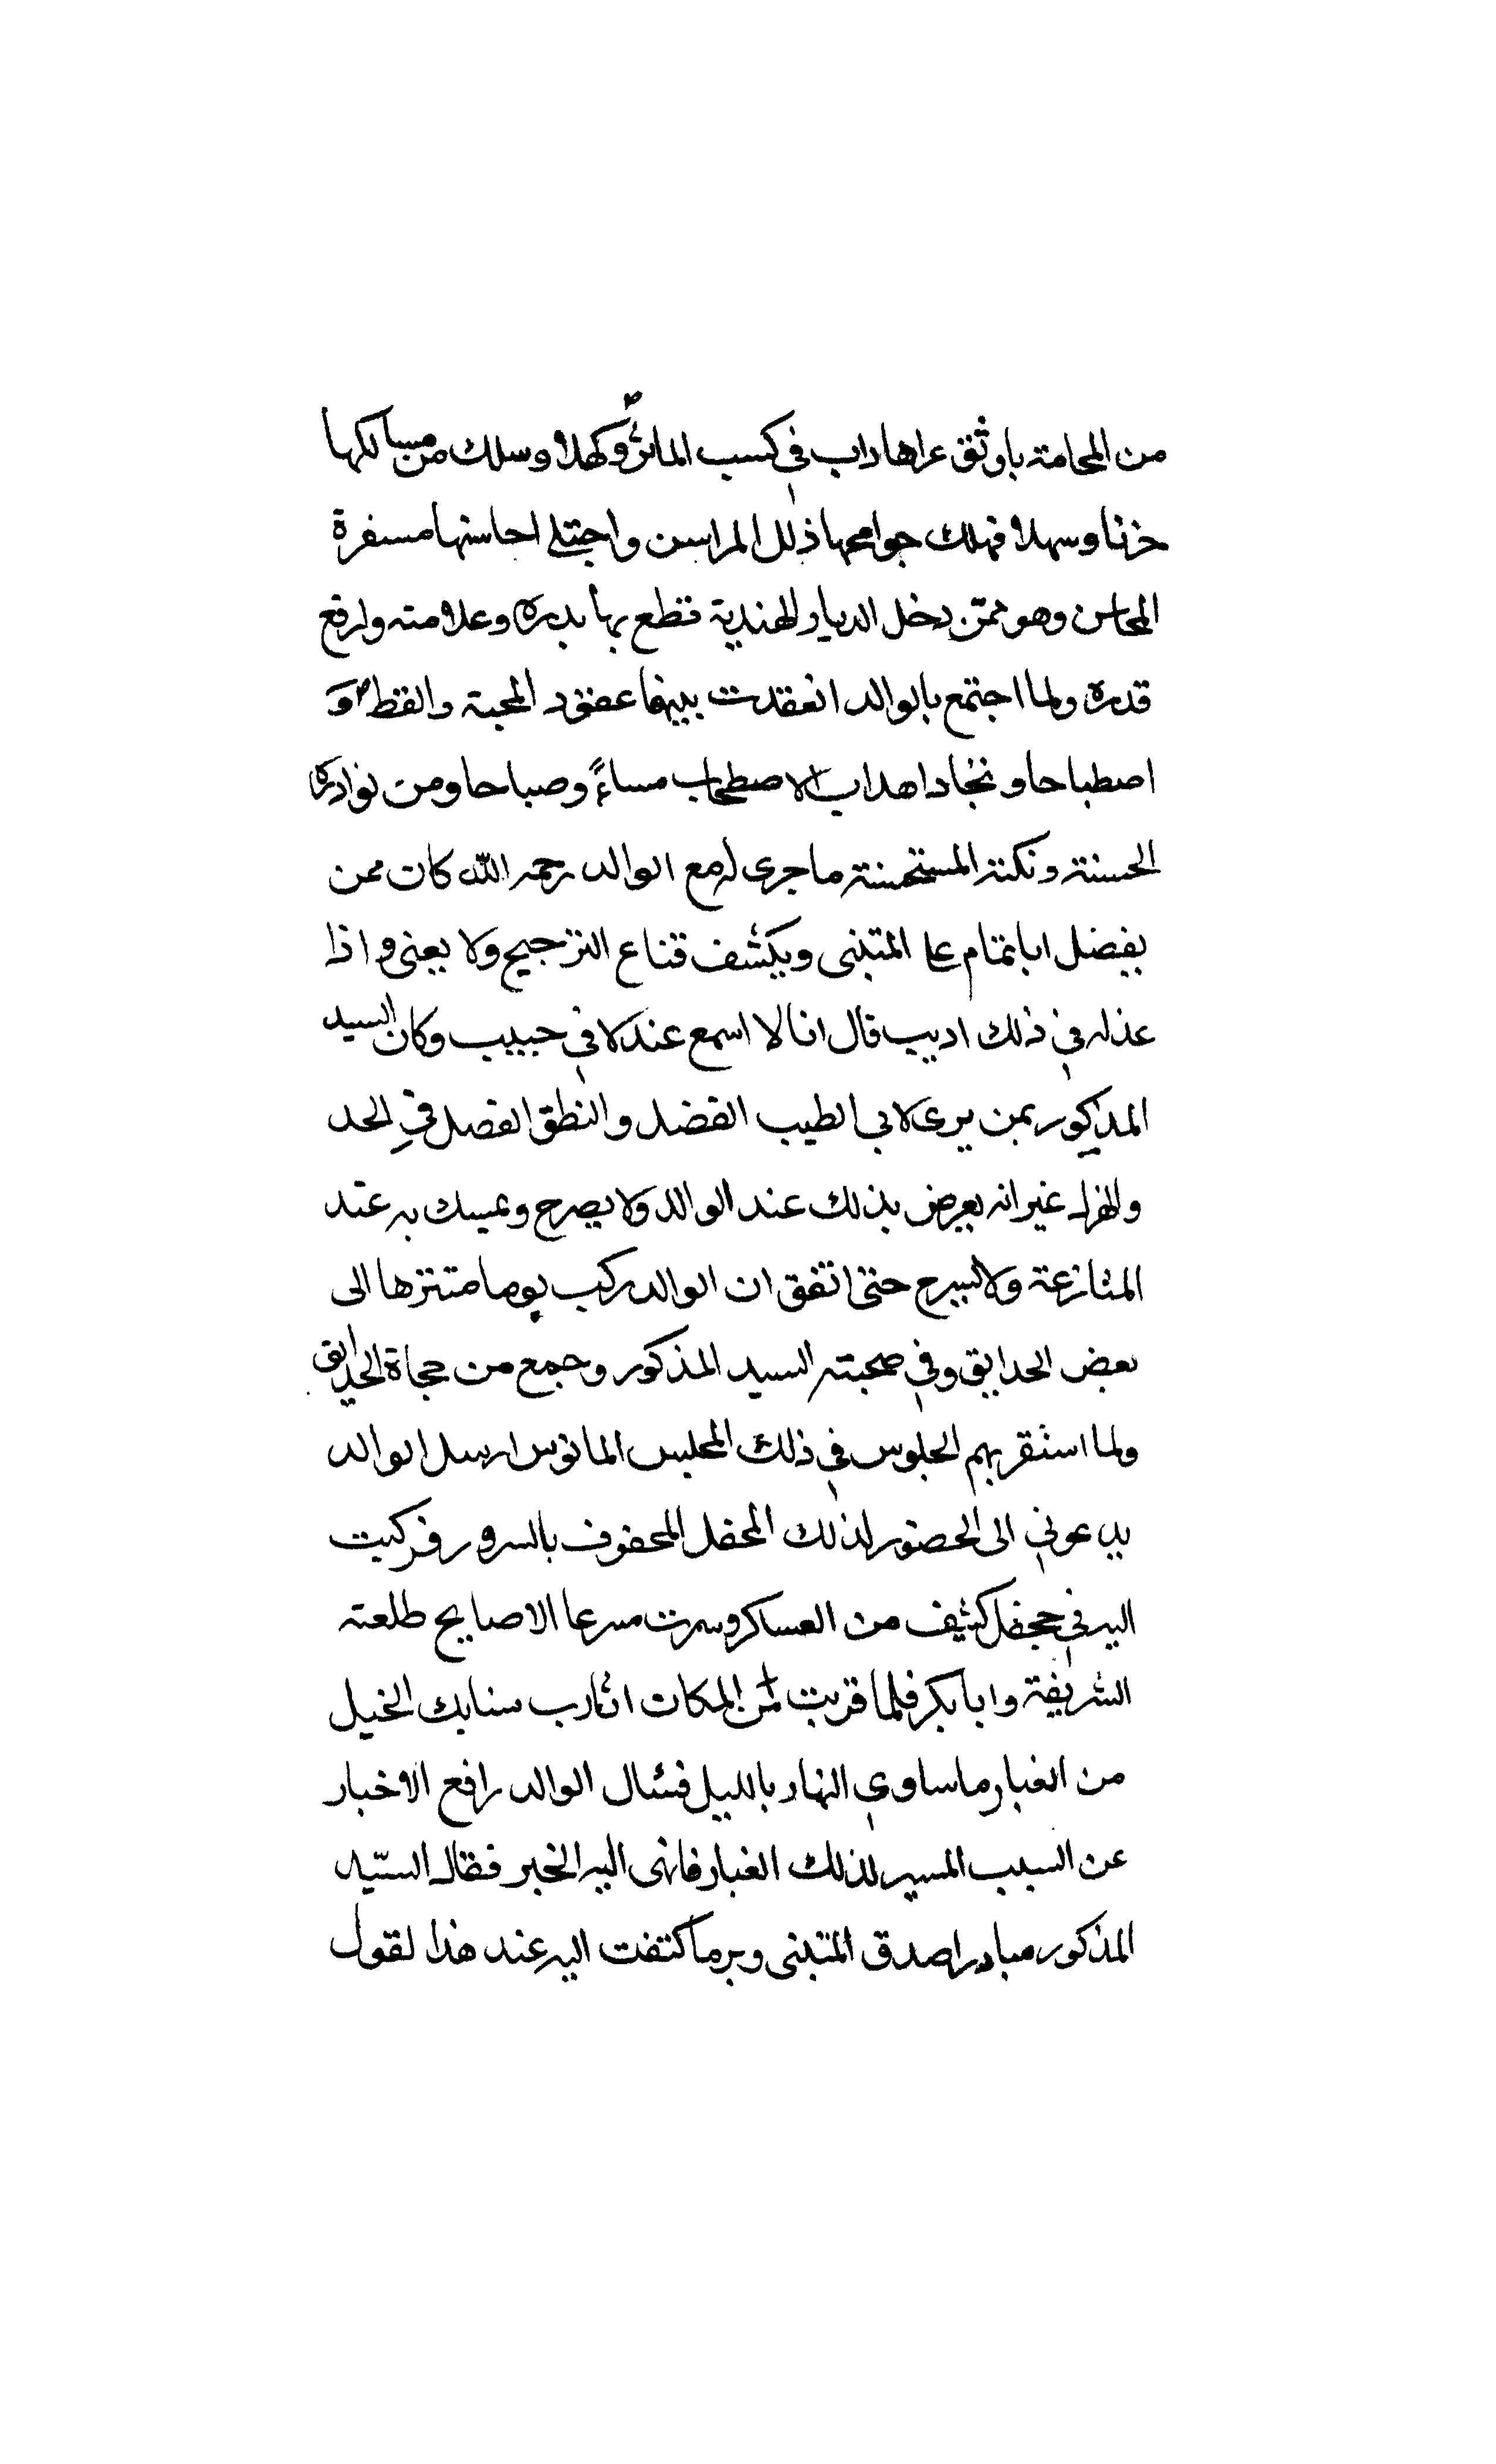 من المحامة باوثق عراها داب في كسب الماثر وكهلا وسلك من مسالكها
حزنا وسهلا فملك جوامحها ذلل المراسن واجتلى احاسنها مسفرة
المحاسن وهو ممّن دخل الديار الهندية فقطع بها بدره وعلا مته وارفع
قدره ولما اجتمع بالوالد انعقدت بينهما عقود المحبة و
اصطباحا و اهداب الاصطحاب مساءً وصباحا ومن نوادره
الحسنة ونكتة المستحسنة ما جرى له مع الوالد رحمه اللّه كان ممن
يفضل ابا تمام على المتبنى ويكشف قناع الترجيح ولا يعنى واذا
عذله في ذلك اديب قال انا لا اسمع عندلا في حبيب وكان السيد
المذكور بمن يرى لابي الطيب الفضل والنطق الفصل في الحد
والهزل غير انه يعرض بذلك عند الوالد ولا يصرح ويمسك به عند
المنازعة ولا يسرح حتى اتفق ان الوالد ركب يوما متنزها الى
بعض الحدايق وفي صحبته السيد المذكور وجمع من حجاة الحدايق
ولما استقر بهم الجلوس في ذلك المجلس المانوس ارسل الوالد
يدعوني الى الحضور لذلك المحفل المحفوف بالسرور فركبت
اليه في جحفل كثيف من العساكر وسرت مسرعا الا صابح طلعته
الشريفة وابا بكر فلما قربت من المكان اثارب سنابك الخيل
من الغبار ما ساوي النهار بالليل فسال الوالد رافع الاخبار
عن السبب المسير لذلك الغبار فانهى اليه الخبر فقال السّيد
المذكور مبادرا صدق المتبنى وبرما كتفت اليه عند هذا لقول